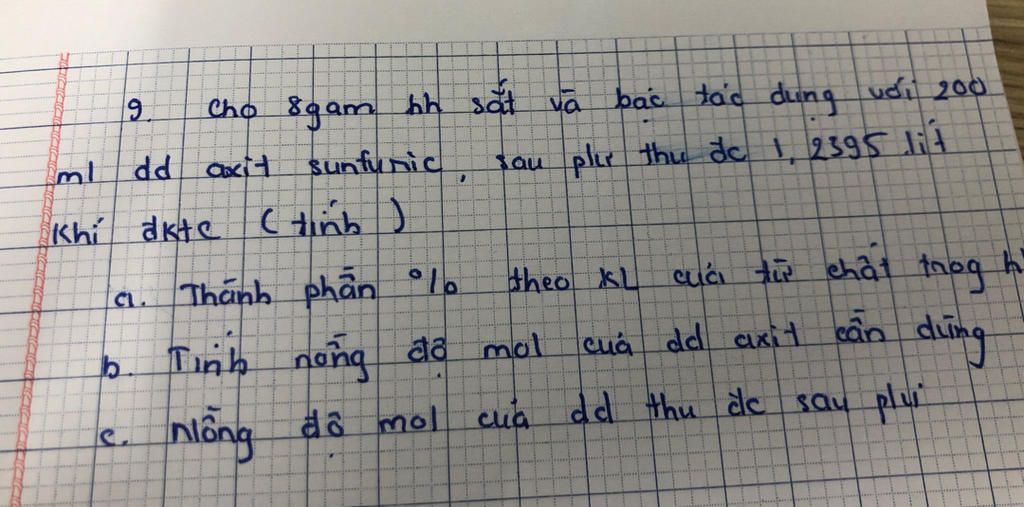 9. Cho 8gam hh sắt và bạc tác dụng với 200
ml dd axit sunfuric, sau pư thu đc 1,2395 lít
Khí đktc (tính)
a. Thành phần % theo KL của từ chất trog h
b. Tính nồng độ mol của dd axit cần dùng
c. Nồng độ mol của dd thu đc sau pư